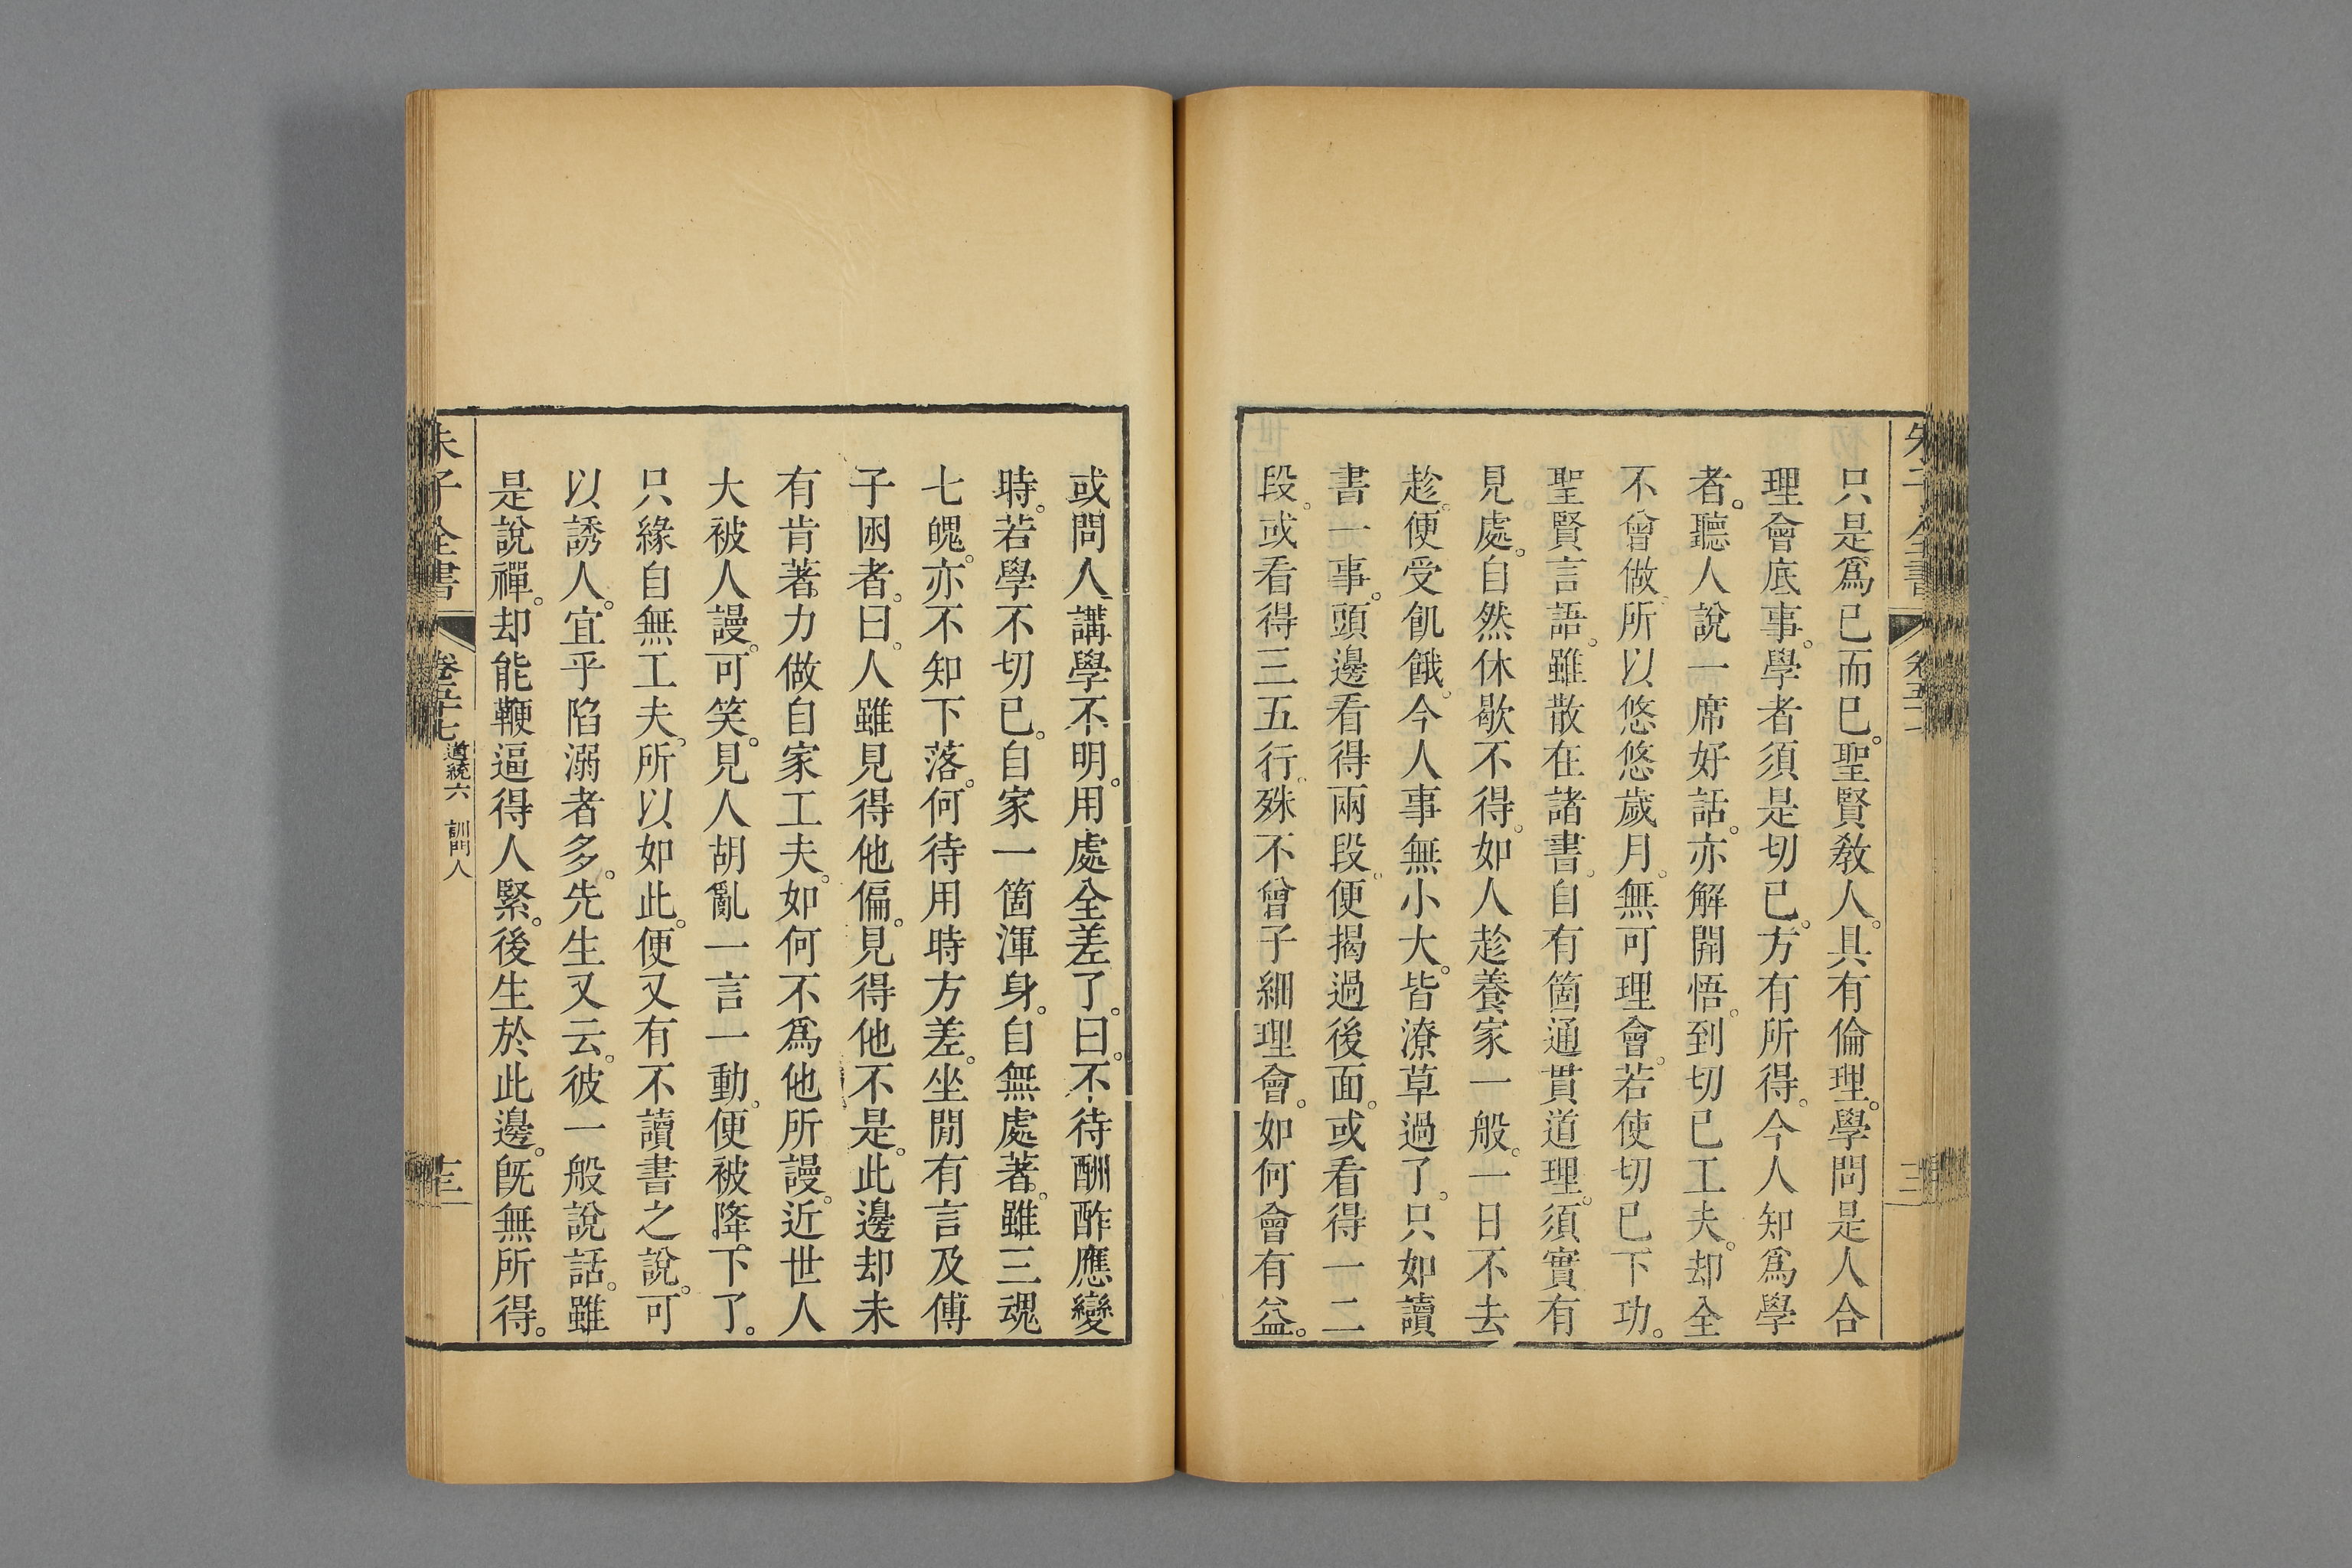 只是爲已而已。聖賢敎人。具有倫理。學問是人合
理會底事。學者須是切已。方有所得。今人知爲學
者。聽人說一席好話。亦解開悟。到切已工夫。却全
不曾做。所以悠悠歲月。無可理會。若使切已下功。
聖賢言語。雖散在諸書。自有箇通貫道理。須實有
見處。自然休歇不得。如人趁養家一般。一日不去
趁。便受飢餓。今人事無小大。皆潦草過了。只如讀
書一事。頭邊看得兩段。便揭過後面。或看得一二
段。或看得三五行。殊不曾子細理會。如何會有益。
或問人講學不明。用處全差了。曰。不待酬酢應變
時。若學不切已。自家一箇渾身。自無處著。雖三魂
七魄。亦不知下落。何待用時方差。坐間有言及傅
子囦者。曰。人雖見得他偏。見得他不是。此邊却未
有肯著力做自家工夫。如何不爲他所謾。近世人
大被人謾。可笑。見人胡亂一言一動。便被降下了。
只緣自無工夫。所以如此。便又有不讀書之說。可
以誘人。宜乎陷溺者多。先生又云。彼一般說話。雖
是說禪。却能鞭逼得人緊。後生於此邊。旣無所得。
朱子全書
卷五十七
道統六 訓門人